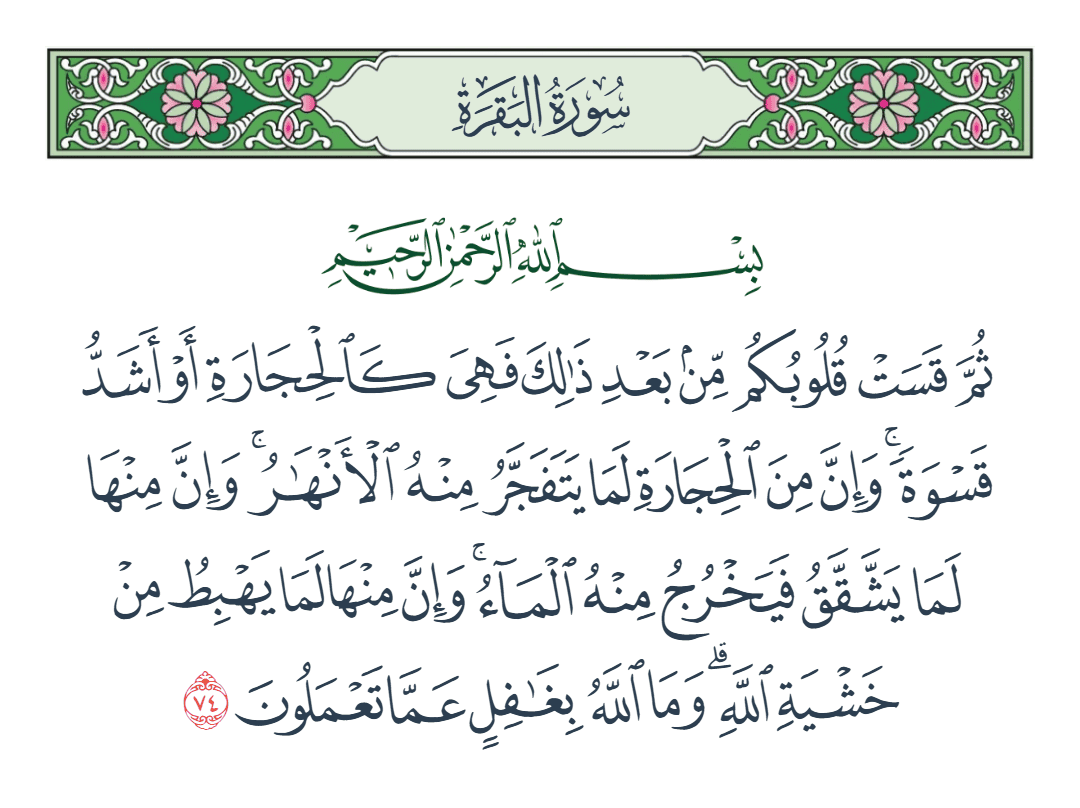 سُورَةُ البَقَرَةِ
بِسْمِ ٱللَّهِ ٱلرَّحْمَٰنِ ٱلرَّحِيمِ
ثُمَّ قَسَتْ قُلُوبُكُم مِّنۢ بَعْدِ ذَٰلِكَ فَهِىَ كَٱلْحِجَارَةِ أَوْ أَشَدُّ
قَسْوَةً ۚ وَإِنَّ مِنَ ٱلْحِجَارَةِ لَمَا يَتَفَجَّرُ مِنْهُ ٱلْأَنْهَـٰرُ ۚ وَإِنَّ مِنْهَا
لَمَا يَشَّقَّقُ فَيَخْرُجُ مِنْهُ ٱلْمَآءُ ۚ وَإِنَّ مِنْهَا لَمَا يَهْبِطُ مِنْ
خَشْيَةِ ٱللَّهِ ۗ وَمَا ٱللَّهُ بِغَـٰفِلٍ عَمَّا تَعْمَلُونَ ٧٤